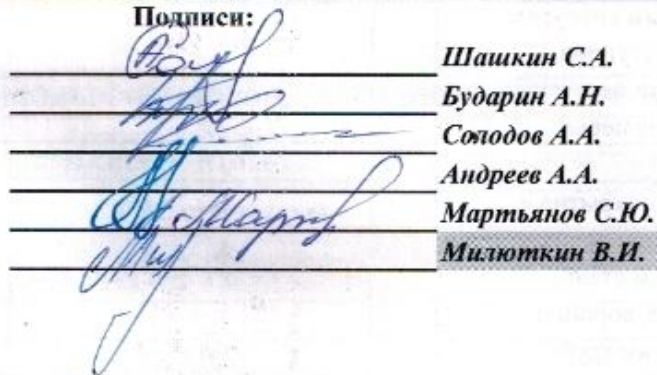 Подписи:
Шашкин С.А.
Бударин А.Н.
Солодов А.А.
Андреев А.А.
Мартьянов С.Ю.
Милюткин В.И.